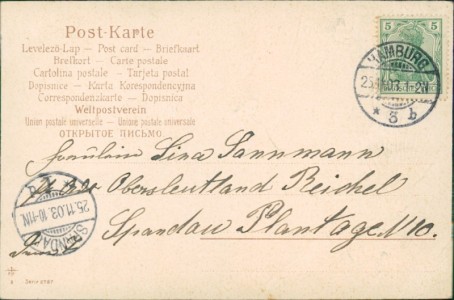 Post-Karte
Levelező-Lap — Post card — Briefkaart
Brefkort — Carte postale
Cartolina postale — Tarjeta postal
Dopisnice - Karta Korespondencyjna
Correspondenzkarte — Dopisnica
Weltpostverein
Union postale universelle — Unione postale universale
ОТКРЫТОЕ ПИСЬМО.
5 5
HAMBURG
1-2N
* 8 b
Fräulein Lina Sannmann
Obersleutland Reichel
Spandau Plantage N 10.
SPANDAU
25.11.03.10-11N.
Serie